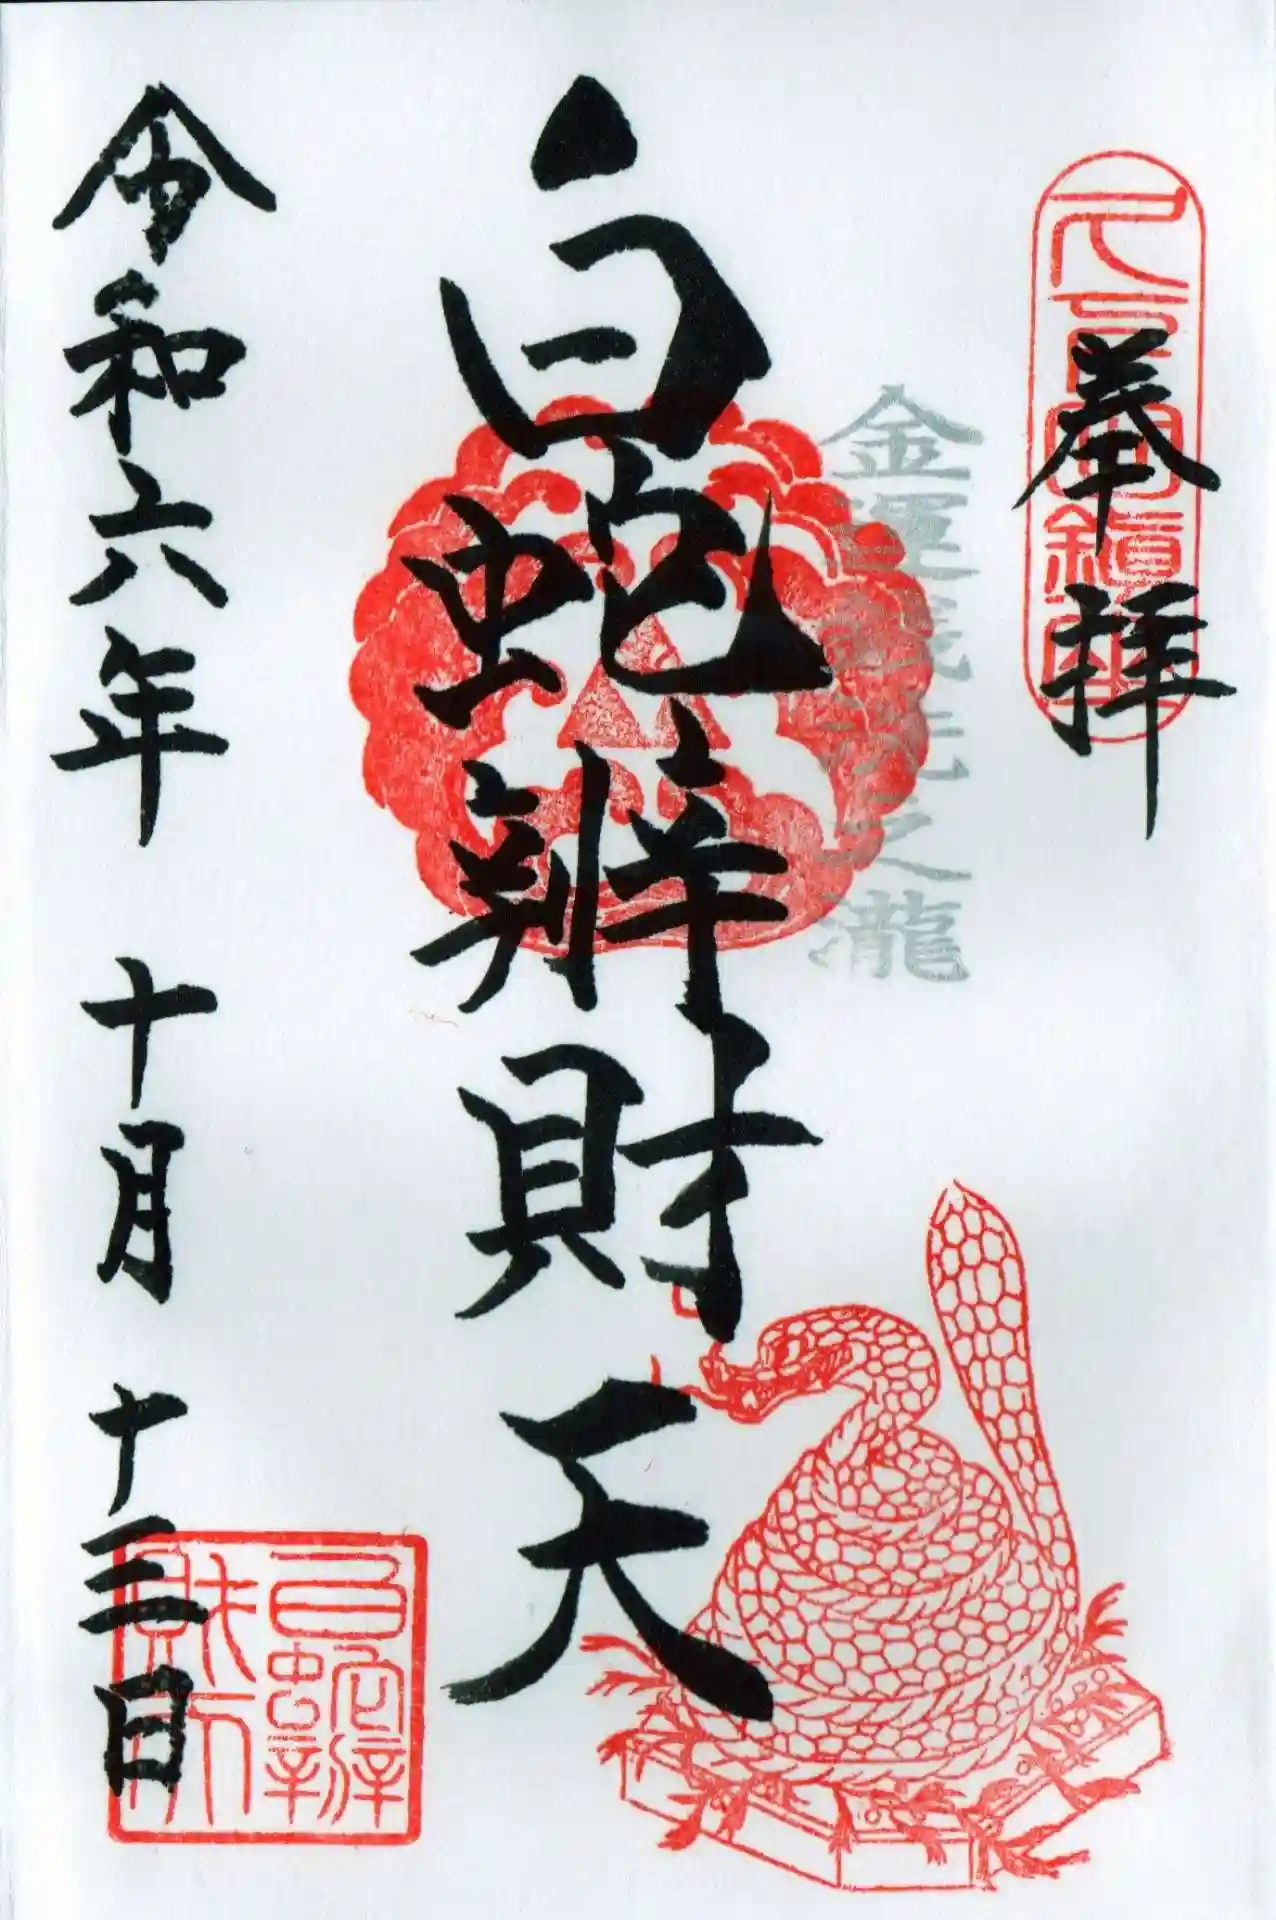 奉拝
久下田鎮座
金運銭洗之瀧
白蛇辨財天
令和六年 十月 十三日
白蛇辨
財天